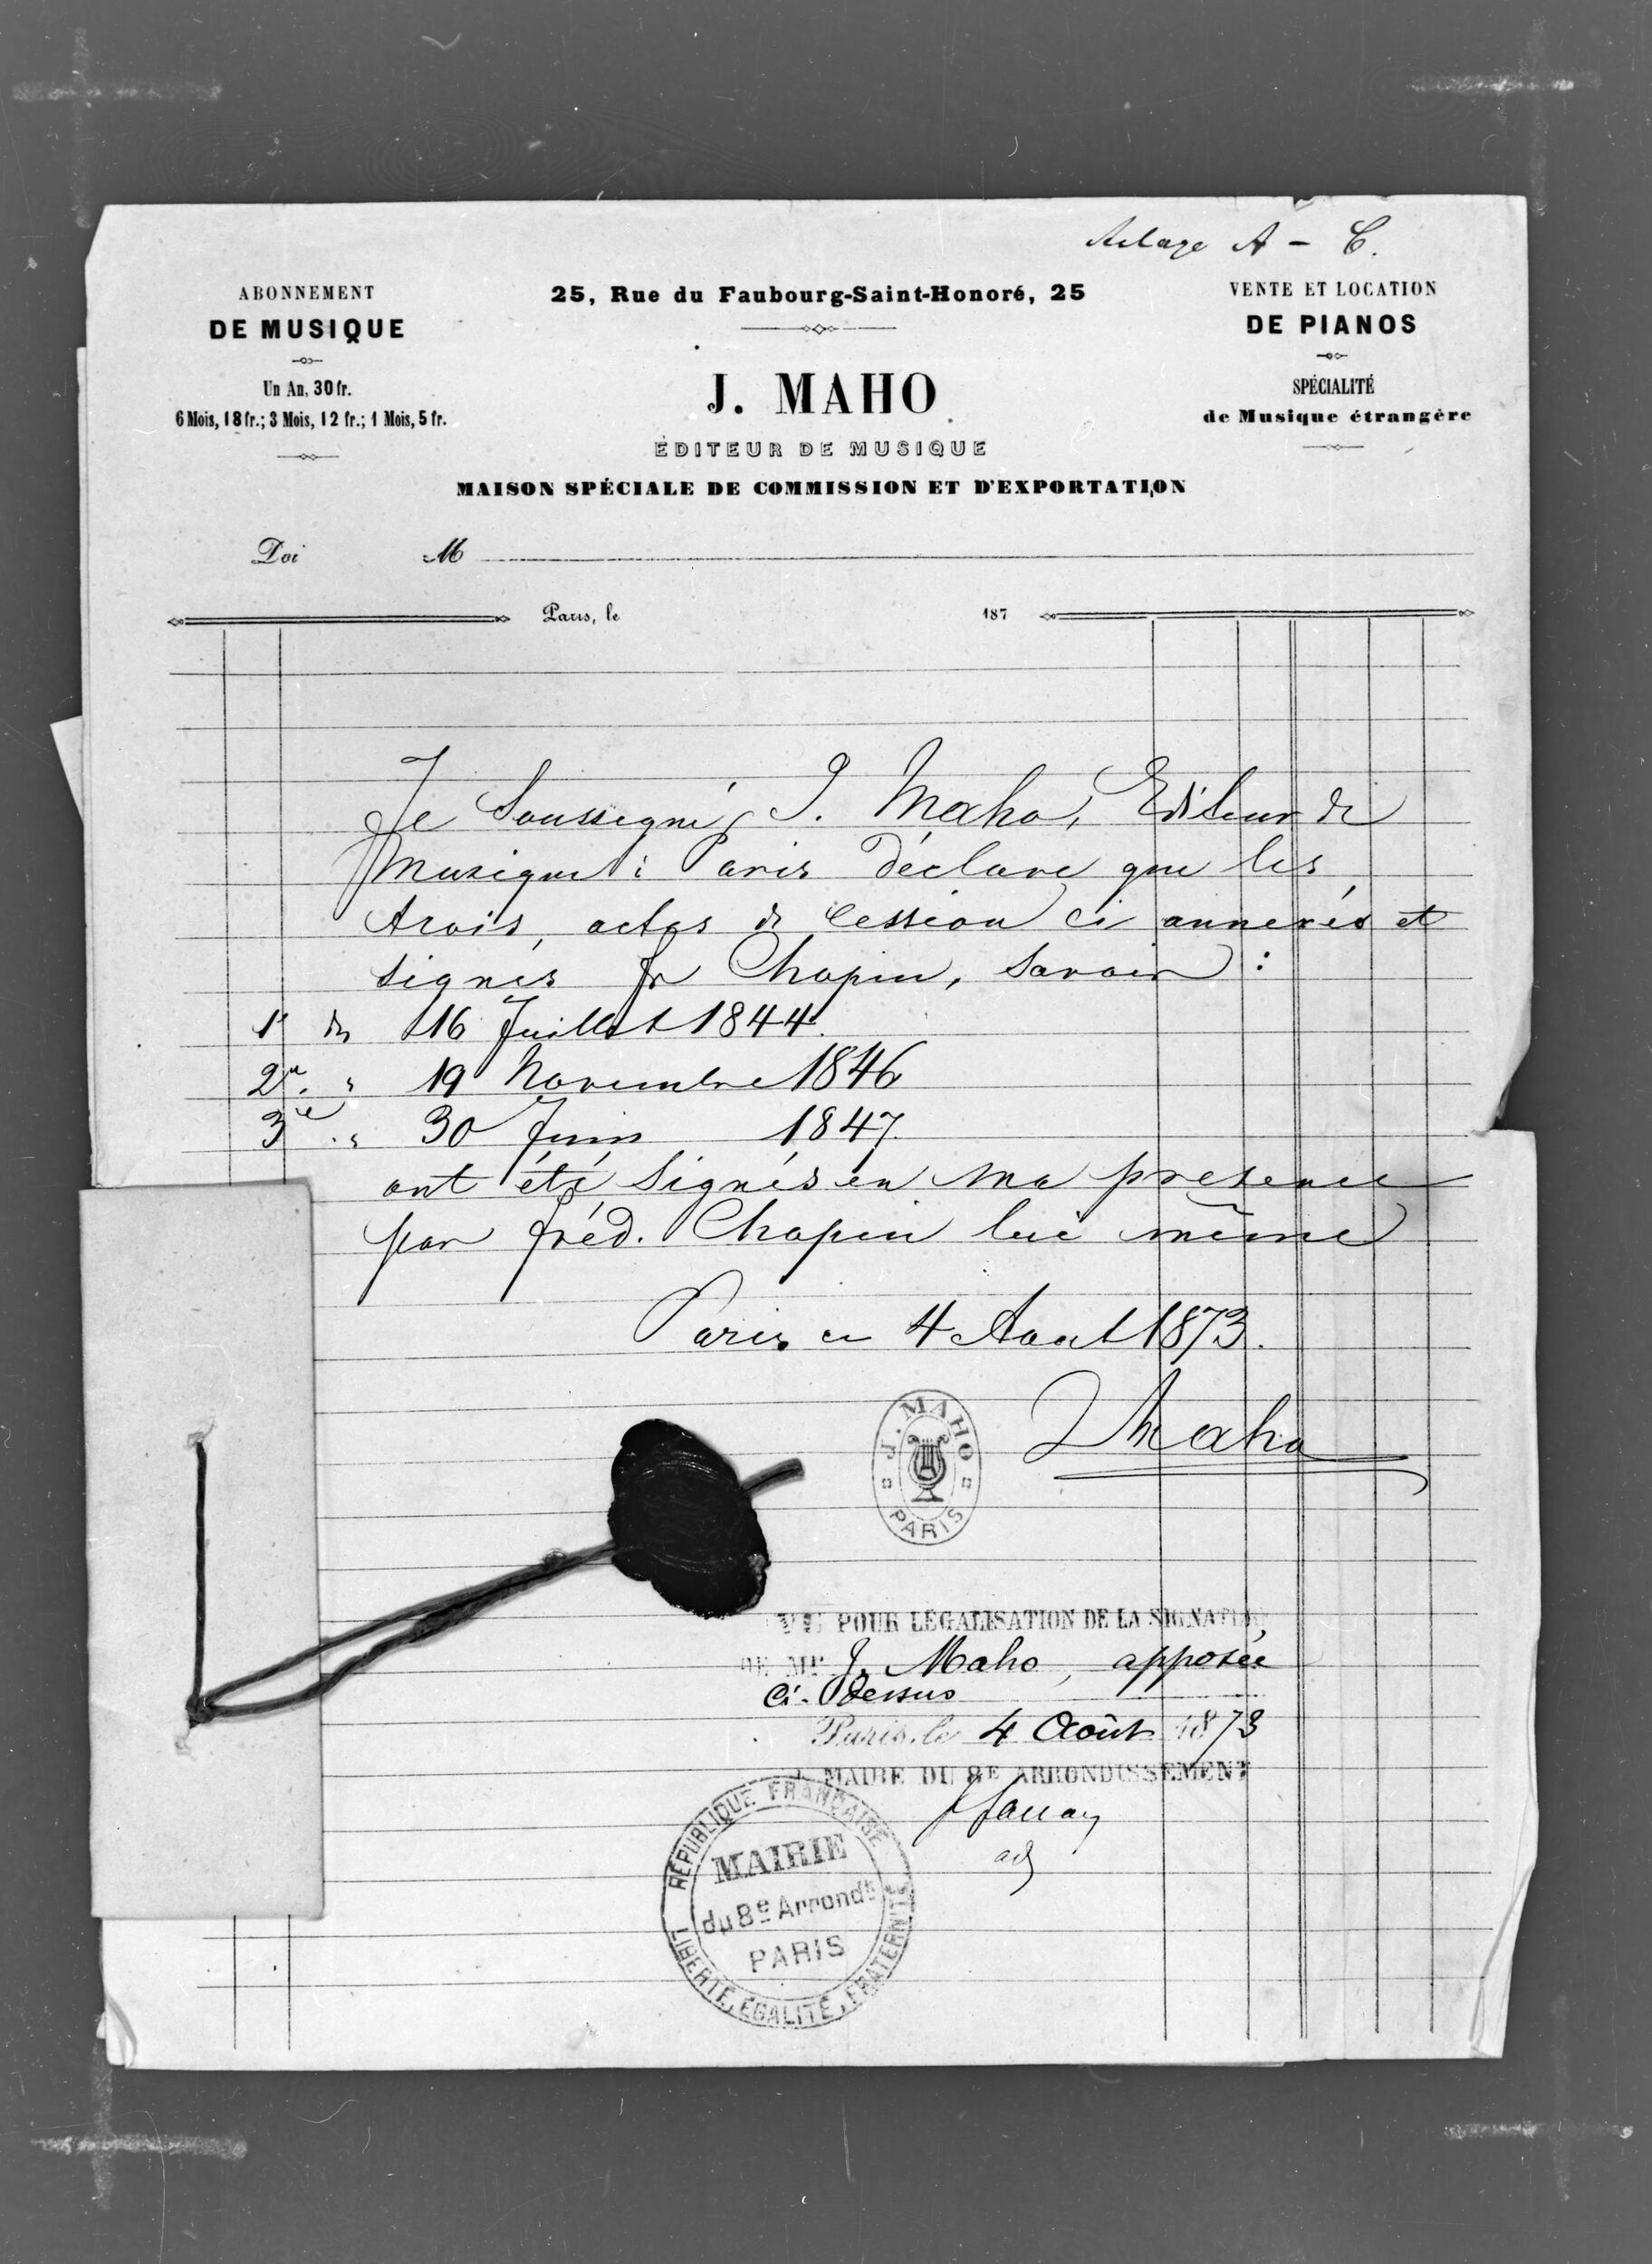 Anlage A – C.
ABONNEMENT
DE MUSIQUE
Un An, 30 fr.
6 Mois, 18 fr.; 3 Mois, 12 fr.; 1 Mois, 5 fr.
25, Rue du Faubourg-Saint-Honoré, 25
J. MAHO
ÉDITEUR DE MUSIQUE
MAISON SPÉCIALE DE COMMISSION ET D'EXPORTATION
VENTE ET LOCATION
DE PIANOS
SPÉCIALITÉ
de Musique étrangère
Doi M
Paris, le 187
Je Soussigné J. Maho, Editeur de
Musique à Paris déclare que les
trois, actes de Cession ci annexés et
signés fr Chopin, Savoir :
1º du 16 Juillet 1844.
2e. " 19 Novembre 1846
3e. " 30 Juin 1847.
ont été Signés en Ma présence
par fréd. Chopin lui même
Paris ce 4 Aout 1873.
J Maho
J. MAHO
PARIS
VU POUR LÉGALISATION DE LA SIGNATURE
DE Mr J. Maho, apposée
Ci-Dessus
Paris, le 4 Août 1873
MAIRE DU 8E ARRONDISSEMENT
adj
RÉPUBLIQUE FRANÇAISE
MAIRIE
du 8e Arrondt
PARIS
LIBERTÉ, ÉGALITÉ, FRATERNITÉ